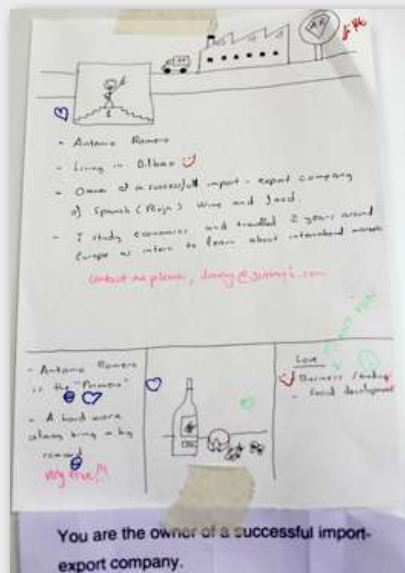 - Antonio Romero
- Living in Bilbao
- Owner of a successful import-export company
of Spanish (Rioja) Wine and food
- I study economics and travelled 2 years around
Europe as intern to learn about international markets
contact me please,
- Antonio Romero
is the
- A hard work
always bring a big
reward
very true!!!
Love
Business
- Social development
You are the owner of a successful import-
export company.